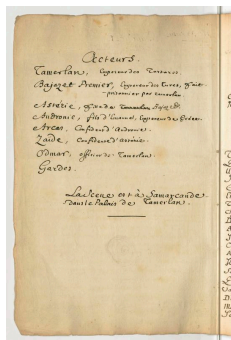 Acteurs.
Tamerlan, Empereur des Tartares.
Bajazet Premier, Empereur des Turcs, fait
prisonnier par Tamerlan.
Astérie,
Andronic, fils d'
Arcas, Confident d'Andronic.
Zaïde, Confidente d'Astérie.
Odmar, officier de Tamerlan.
Gardes.
La Scene est à Samarcande
dans le Palais de Tamerlan.